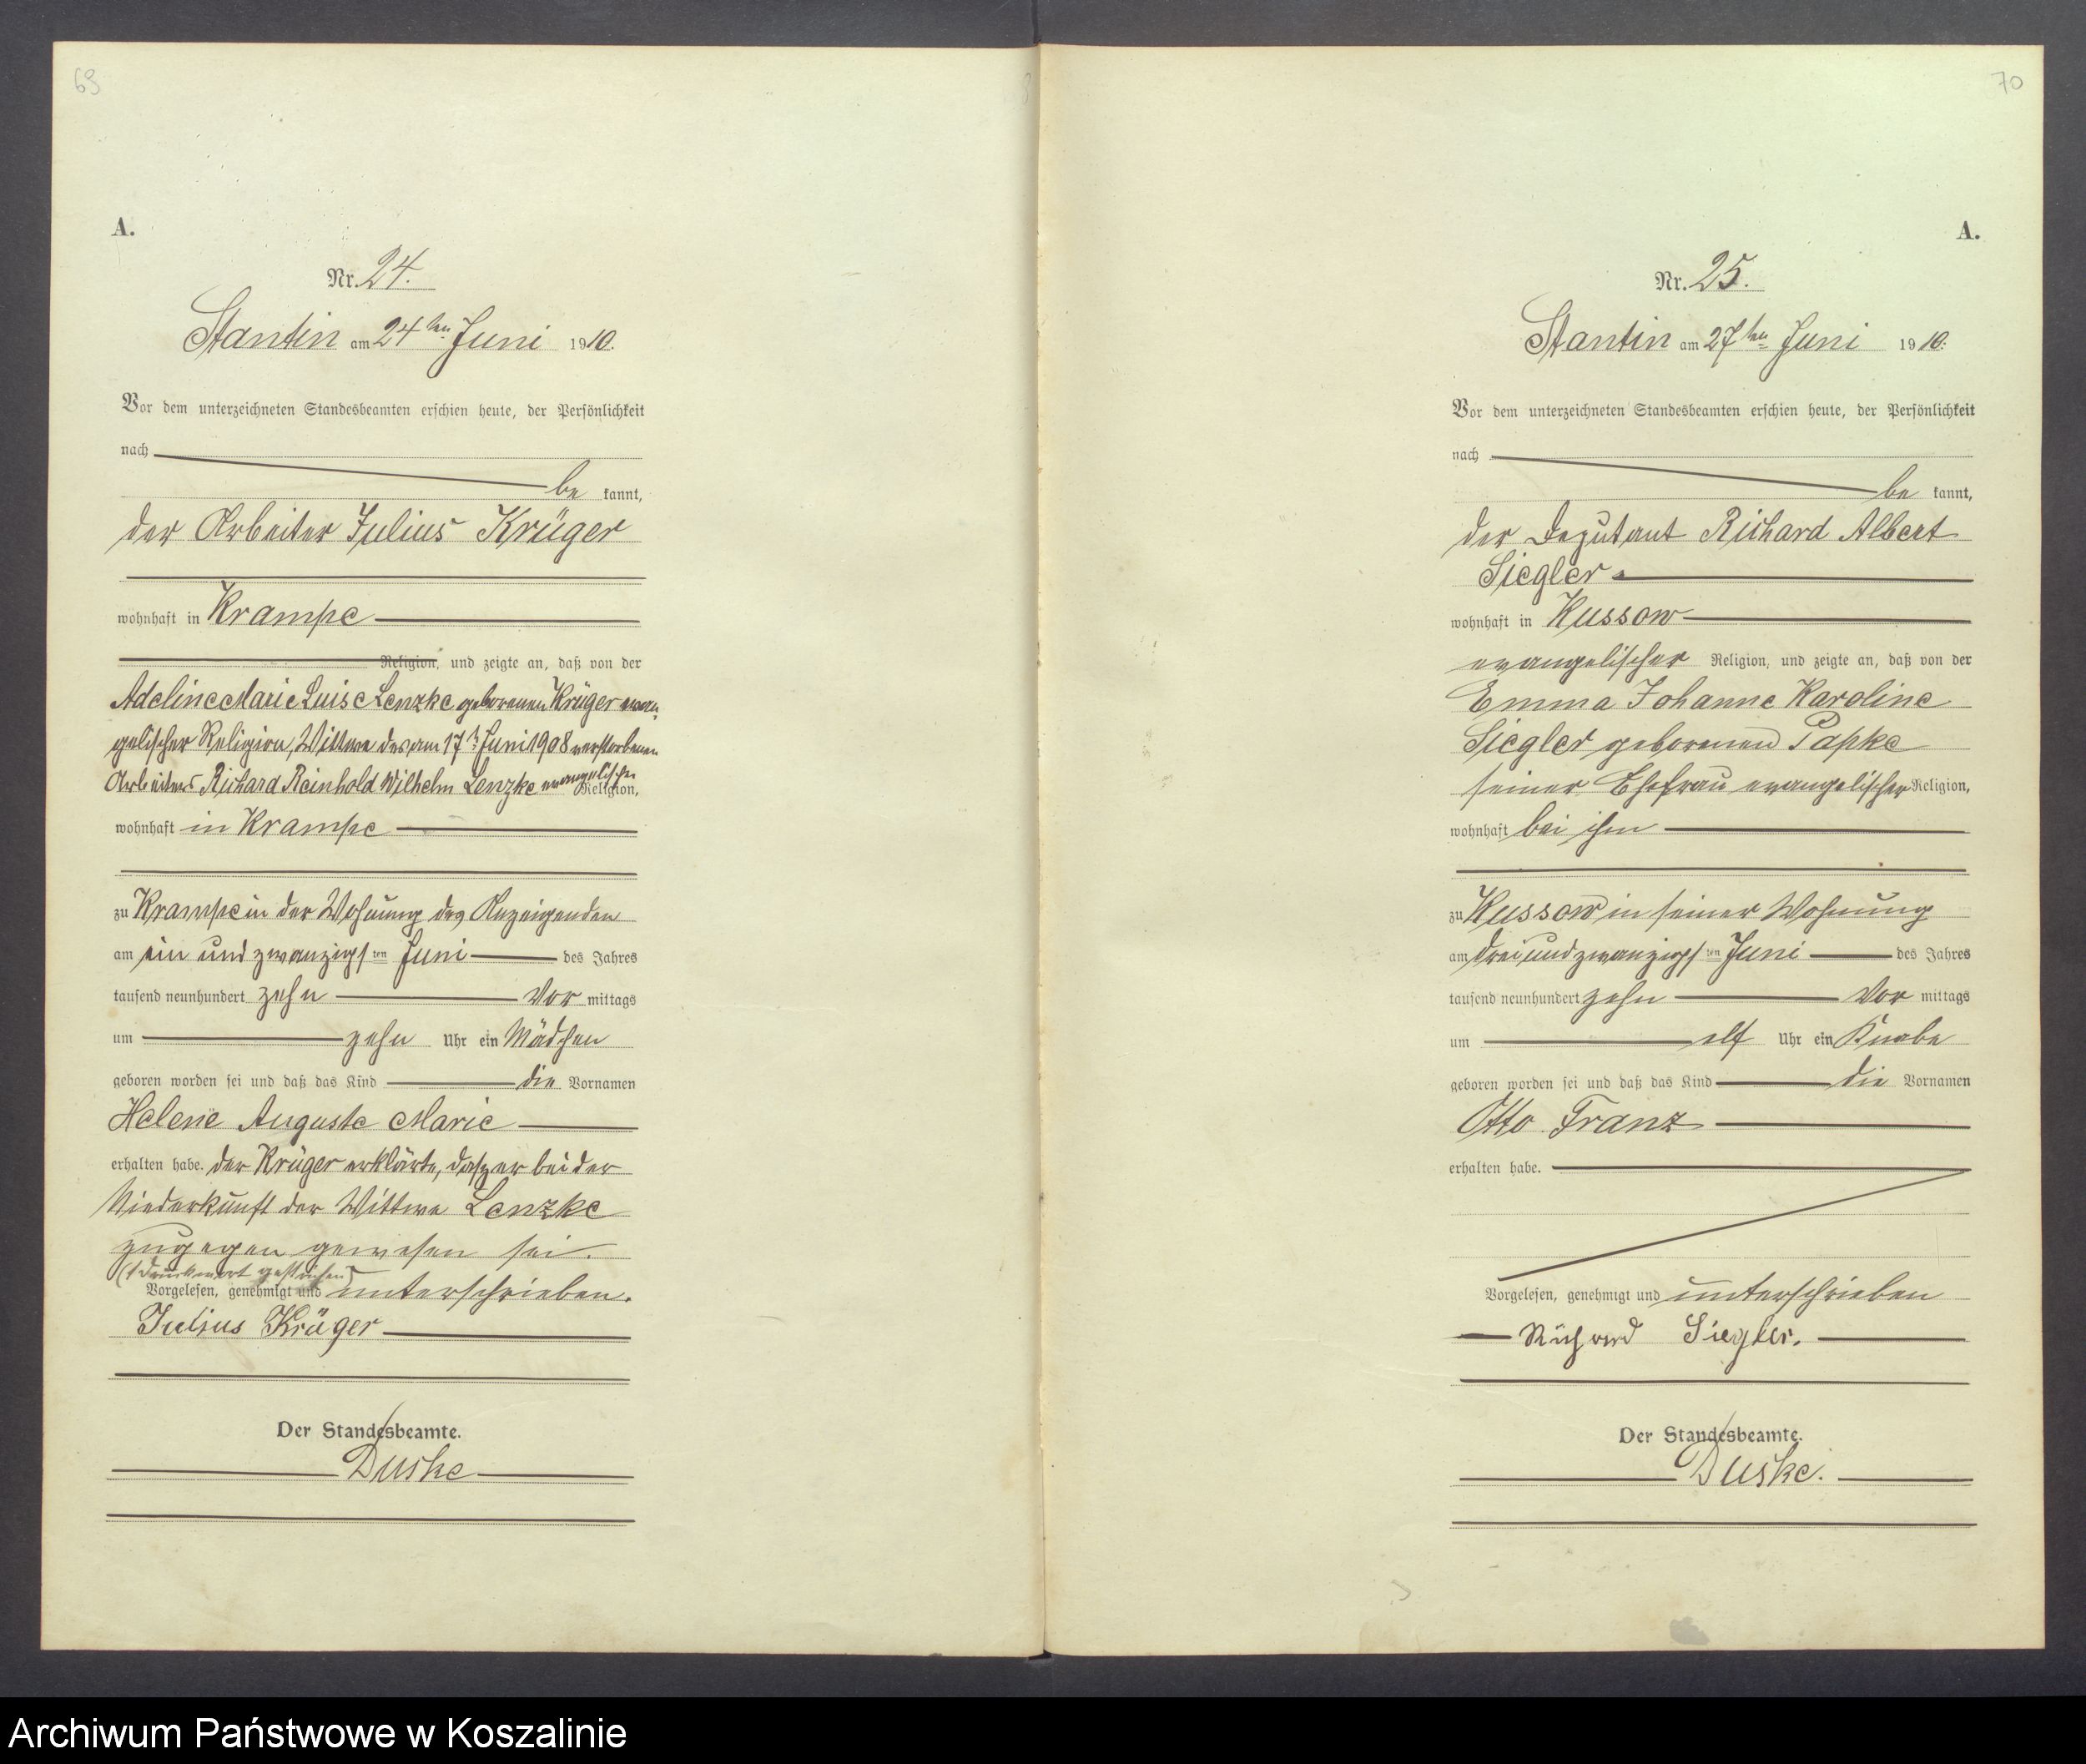 69
A.
Nr. 24.
Stantin am 24ten Juni 1910.
Vor dem unterzeichneten Standesbeamten erschien heute, der Persönlichkeit
nach
be kannt,
der Arbeiter Julius Krüger
wohnhaft in Krampe
Religion, und zeigte an, daß von der
Adeline Marie Luise Lenzke geborenen Krüger evan
gelischer Religion, Wittwe des am 17ten Juni 1908 verstorbenen
Arbeiters Richard Reinhold Wilhelm Lenzke evangelischer
Religion,
wohnhaft in Krampe
zu Krampe in der Wohnung des Anzeigenden
am ein und zwanzigsten Juni des Jahres
tausend neunhundert zehn Vor mittags
um zehn Uhr ein Mädchen
geboren worden sei und daß das Kind die Vornamen
Helene Auguste Marie
erhalten habe. Der Krüger erklärte, daß er bei der
Niederkunft der Wittwe Lenzke
zugegen gewesen sei.
(1 Druckwort gestrichen)
Vorgelesen, genehmigt und unterschrieben.
Julius Krüger
Der Standesbeamte.
Duske
70
A.
Nr. 25.
Stantin am 27ten Juni 1910.
Vor dem unterzeichneten Standesbeamten erschien heute, der Persönlichkeit
nach
be kannt,
der Deputant Richard Albert
Siegler
wohnhaft in Kussow
evangelischer Religion, und zeigte an, daß von der
Emma Johanne Karoline
Siegler geborenen Papke
seiner Ehefrau evangelischer Religion,
wohnhaft bei ihm
zu Kussow in seiner Wohnung
am drei und zwanzigsten Juni des Jahres
tausend neunhundert zehn Vor mittags
um elf Uhr ein Knabe
geboren worden sei und daß das Kind die Vornamen
Otto Franz
erhalten habe.
Vorgelesen, genehmigt und unterschrieben
Richard Siegler.
Der Standesbeamte.
Duske.
Archiwum Państwowe w Koszalinie